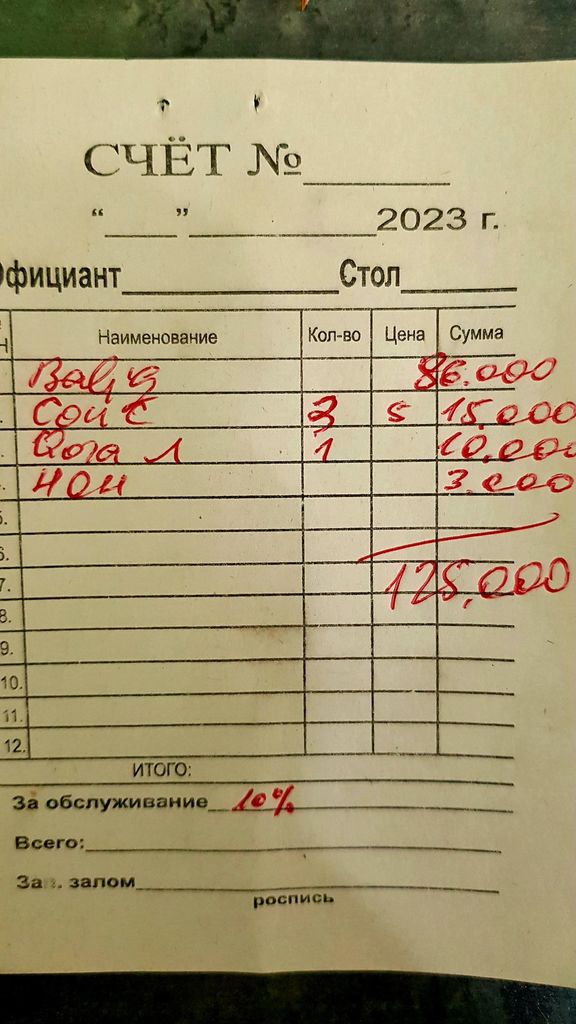 СЧЁТ № ________
“____” __________ 2023 г.
Официант__________ Стол______
Наименование Кол-во Цена Сумма
Baliq 86.000
3 5 15.000
Qora 1 10.000
4. НОН 3.000
5.
6.
7. 125,000
8.
9.
10.
11.
12.
ИТОГО:
За обслуживание 10%
Всего:
Зав. залом
роспись